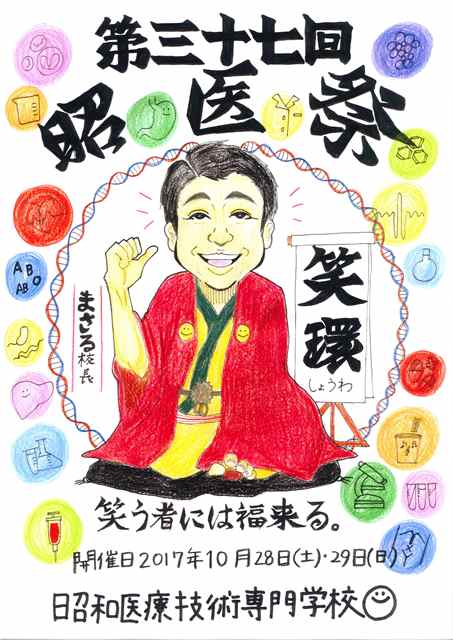 第三十七回
昭医祭
A B
AB O
笑環
しょうわ
まさる校長
笑う者には福来る。
開催日2017年10月28日(土)・29日(日)
昭和医療技術専門学校